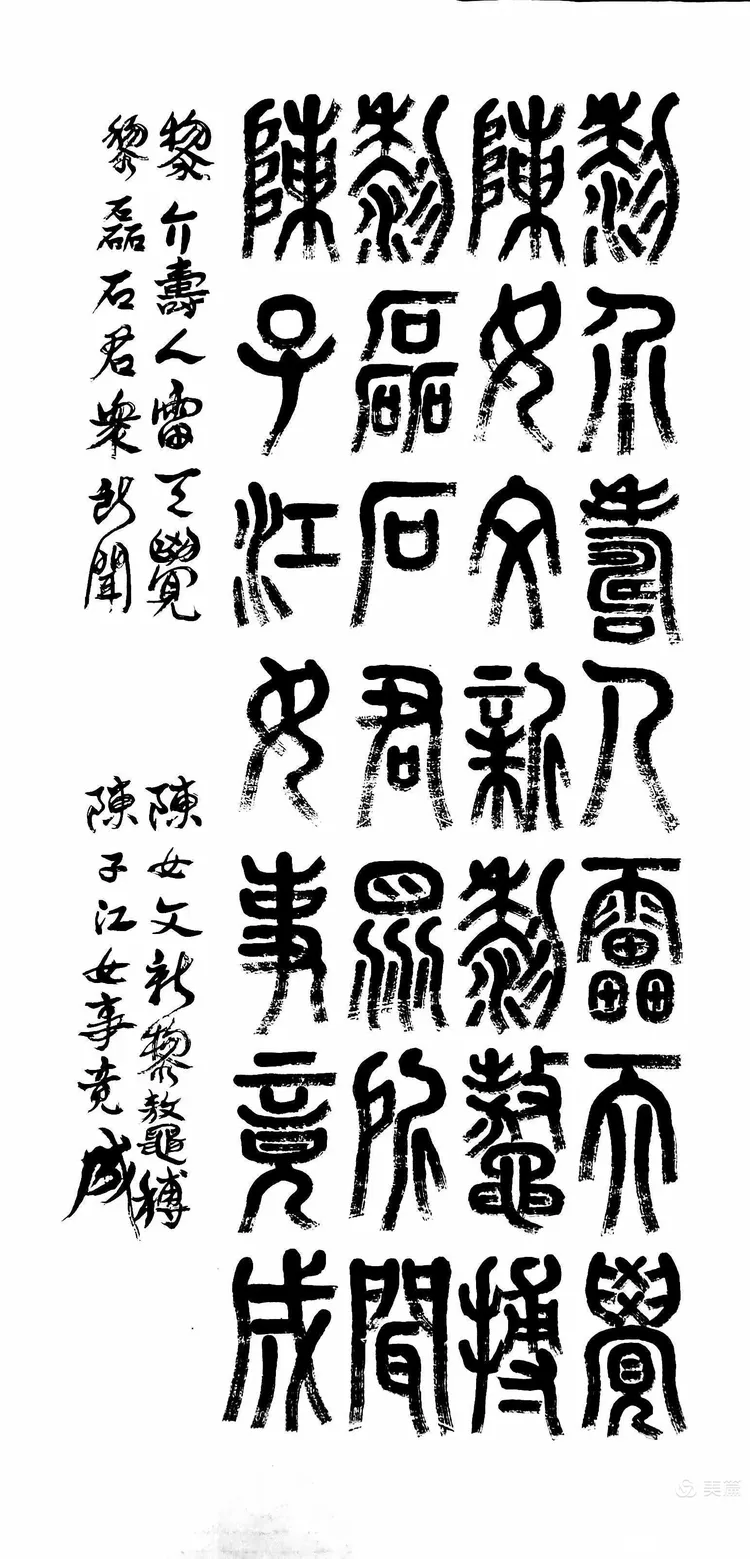 黎介壽人雷天覺
陳女文新黎鼇搏
黎磊石君眾所聞
陳子江女事竟成
黎介壽人雷天覺 陳女文新黎鼇搏
黎磊石君衆所聞 陳子江女事竟成
美篇